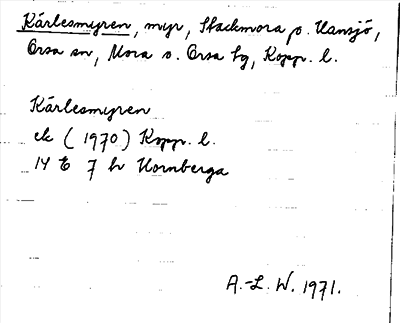 Kárlesmyren, myr, Stackmora o. Hansjö,
Orsa sn, Mora o. Orsa tg, Kopp. l.
Kárlesmyren
ek (1970) Kopp. l.
14 E 7 h Hornberga
A.-L. W. 1971.